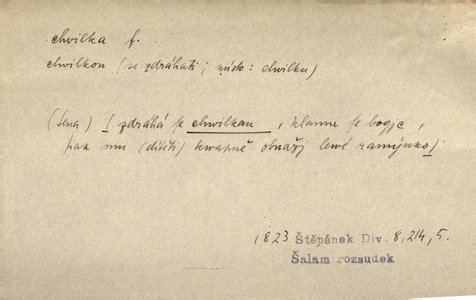 chwilka f.
chwilkou (se zdráhati; místo: chvilku)
(žena) [zdráhá se chwilkau, klamu se bogje,
pak mu (dítěti) kwapně obnažj lewé ramýnko]
1823 Štěpánek Div. 8, 214, 5.
Šalam rozsudek